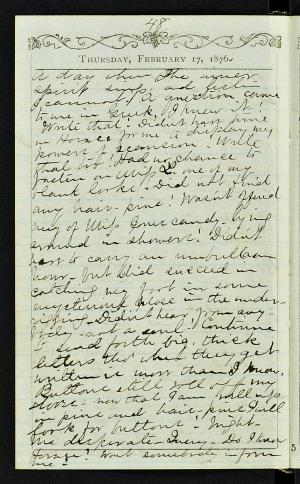 48
THURSDAY, FEBRUARY 17, 1876.
A day when the inner
spirit sings, and
I cannot! A question came
to me in Greek, I knew it!
Write that! Didn't
in Horace for me to display my
powers of scansion! Write
that too! Had no chance to
one of my
blank looks! Did not find
any hair pins! Wasn't offered
any of Miss candy. lying
around in showers! Didn't
have to carry an umbrella an
hour - but did succeed in
catching my foot in some
mysterious place in the under
Didn't hear from any-
body - not a soul! Continue
to send forth big, thick
letters tho' when they get
written is more than I know.
Buttons still roll off my
shoes: now that I am well up
in pins and hair-pins I will
look for buttons - Might
me desperate - Query - Do I know
Horace? Wont somebody inform
me -